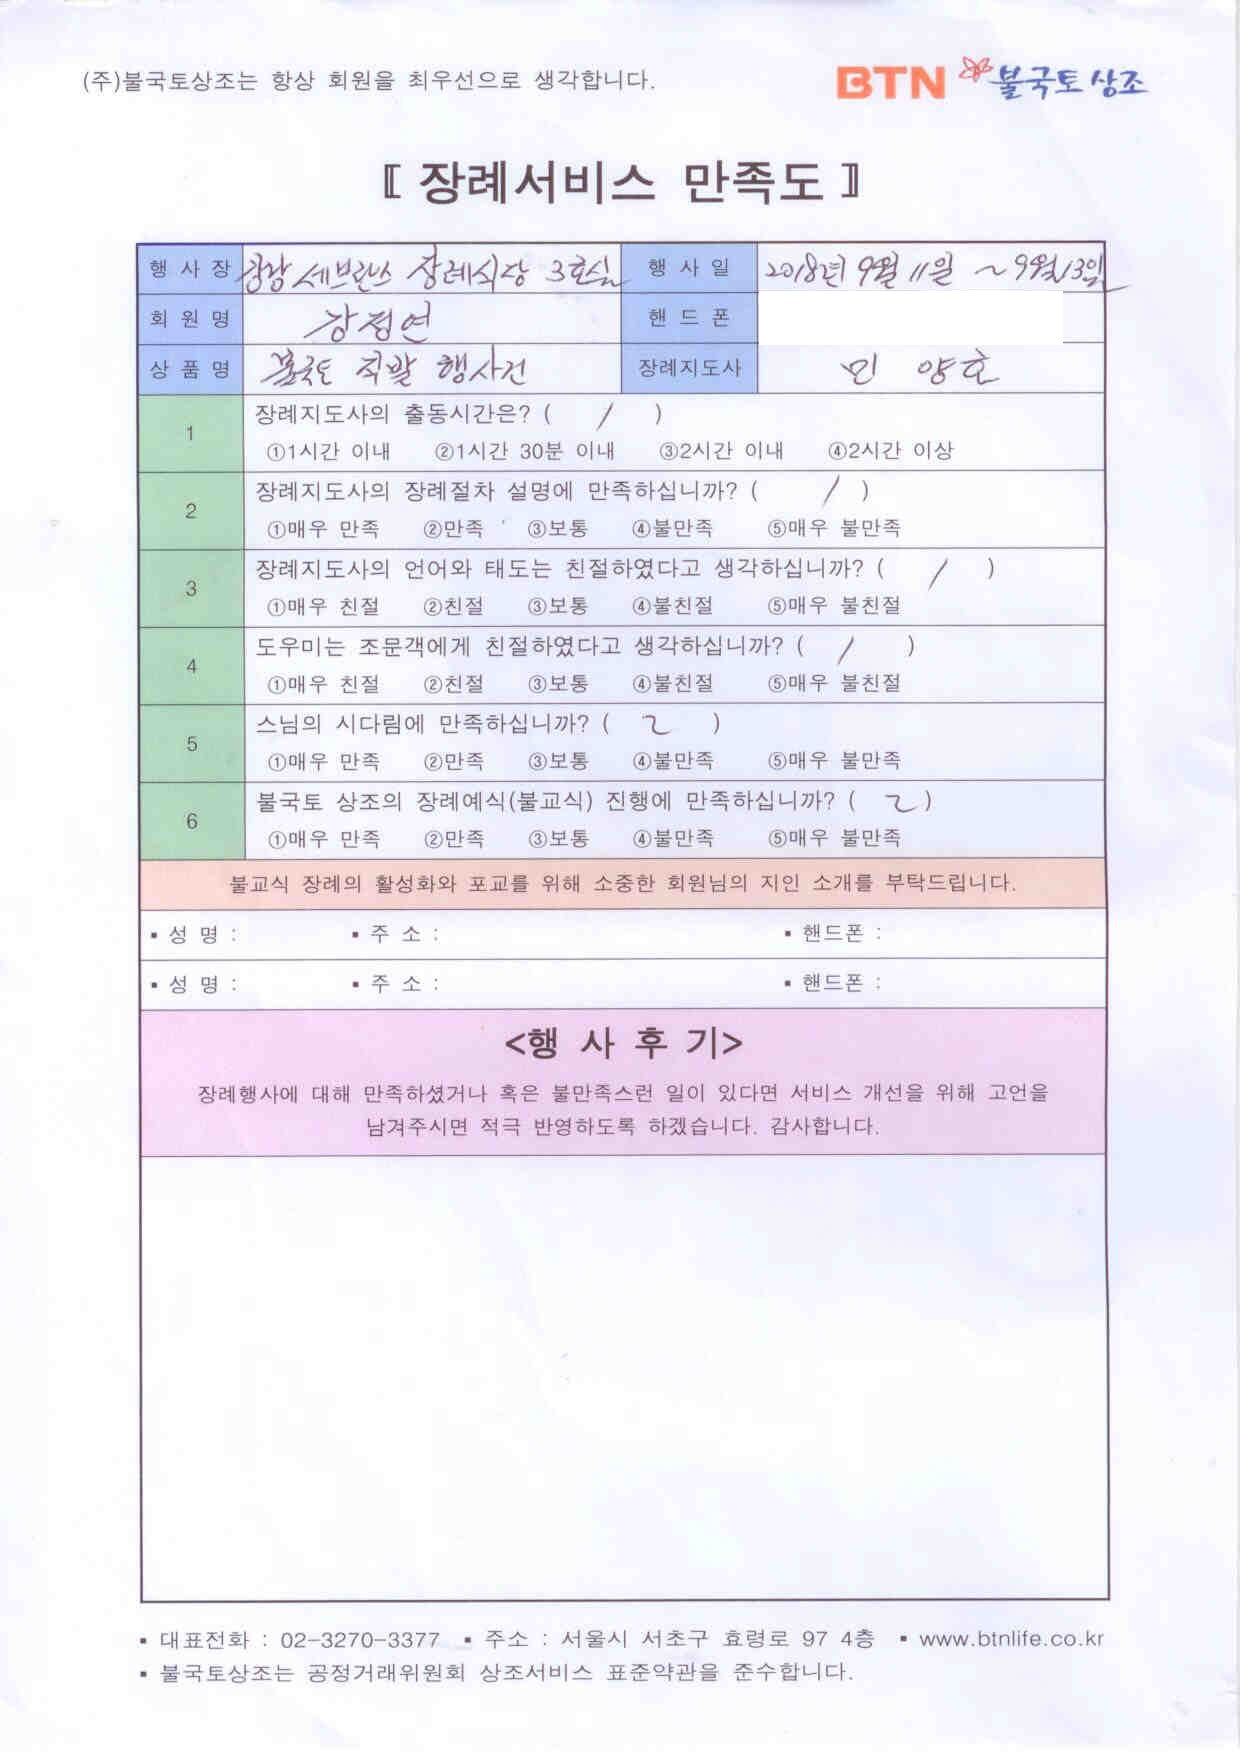 (주)불국토상조는 항상 회원을 최우선으로 생각합니다.
BTN 불국토 상조
〖 장례서비스 만족도 〗
행 사 장 세브란스 장례식장 3호실 행 사 일 2018년 9월 11일 ~ 9월 13일
회 원 명 강정연 핸 드 폰
상 품 명 불국토 직발 행사건 장례지도사 민 양호
1 장례지도사의 출동시간은? ( 1 )
①1시간 이내 ②1시간 30분 이내 ③2시간 이내 ④2시간 이상
2 장례지도사의 장례절차 설명에 만족하십니까? ( 1 )
①매우 만족 ②만족 ③보통 ④불만족 ⑤매우 불만족
3 장례지도사의 언어와 태도는 친절하였다고 생각하십니까? ( 1 )
①매우 친절 ②친절 ③보통 ④불친절 ⑤매우 불친절
4 도우미는 조문객에게 친절하였다고 생각하십니까? ( 1 )
①매우 친절 ②친절 ③보통 ④불친절 ⑤매우 불친절
5 스님의 시다림에 만족하십니까? ( 2 )
①매우 만족 ②만족 ③보통 ④불만족 ⑤매우 불만족
6 불국토 상조의 장례예식(불교식) 진행에 만족하십니까? ( 2 )
①매우 만족 ②만족 ③보통 ④불만족 ⑤매우 불만족
불교식 장례의 활성화와 포교를 위해 소중한 회원님의 지인 소개를 부탁드립니다.
▪ 성 명 : ▪ 주 소 : ▪ 핸드폰 :
▪ 성 명 : ▪ 주 소 : ▪ 핸드폰 :
<행 사 후 기>
장례행사에 대해 만족하셨거나 혹은 불만족스런 일이 있다면 서비스 개선을 위해 고언을
남겨주시면 적극 반영하도록 하겠습니다. 감사합니다.
▪ 대표전화 : 02-3270-3377 ▪ 주소 : 서울시 서초구 효령로 97 4층 ▪ www.btnlife.co.kr
▪ 불국토상조는 공정거래위원회 상조서비스 표준약관을 준수합니다.